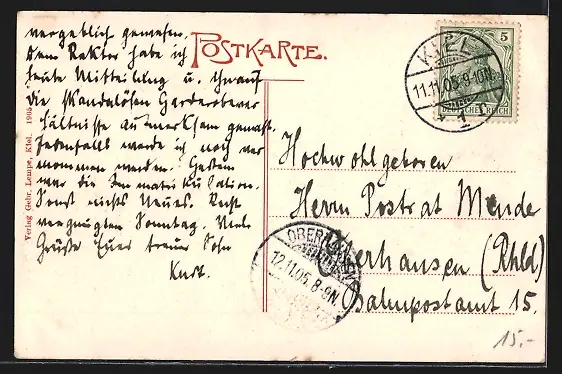 vergeblich gewesen.
Dem Rektor habe ich
heute Mitteilung u. ihn auf
die skandalösen Garderobever
hältnisse aufmerksam gemacht.
Jedenfalls werde ich noch ver
nommen werden. Gestern
war die Immatrikulation.
Sonst nichts Neues. Recht
vergnügten Sonntag. Viele
Grüße Euer treuer Sohn
Kurt.
POSTKARTE.
Verlag Gebr. Lempe, Kiel. 1905
5
DEUTSCHES REICH
KIEL
11.11.05.9-10N.
* 1
Hochwohlgeboren
Herrn Postrat Mende
Oberhausen (Rhld)
Bahnpostamt 15.
OBERHAUSEN
12.11.05. 8-9N.
15.-